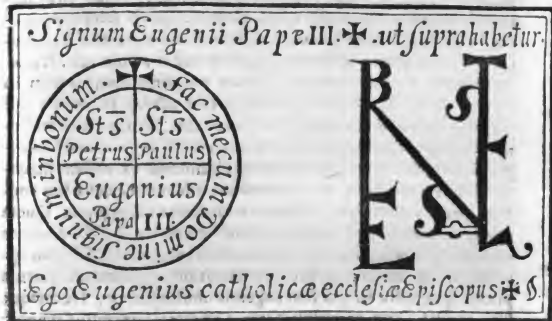 Signum Eugenii Papæ III. ✠ .ut ſupra habetur.
✠ fac mecum Domine ſignum in bonum.
St̄s St̄s
Petrus Paulus
Eugenius
Papa III.
Ego Eugenius catholicæ eccleſiæ Epiſcopus ✠ S.